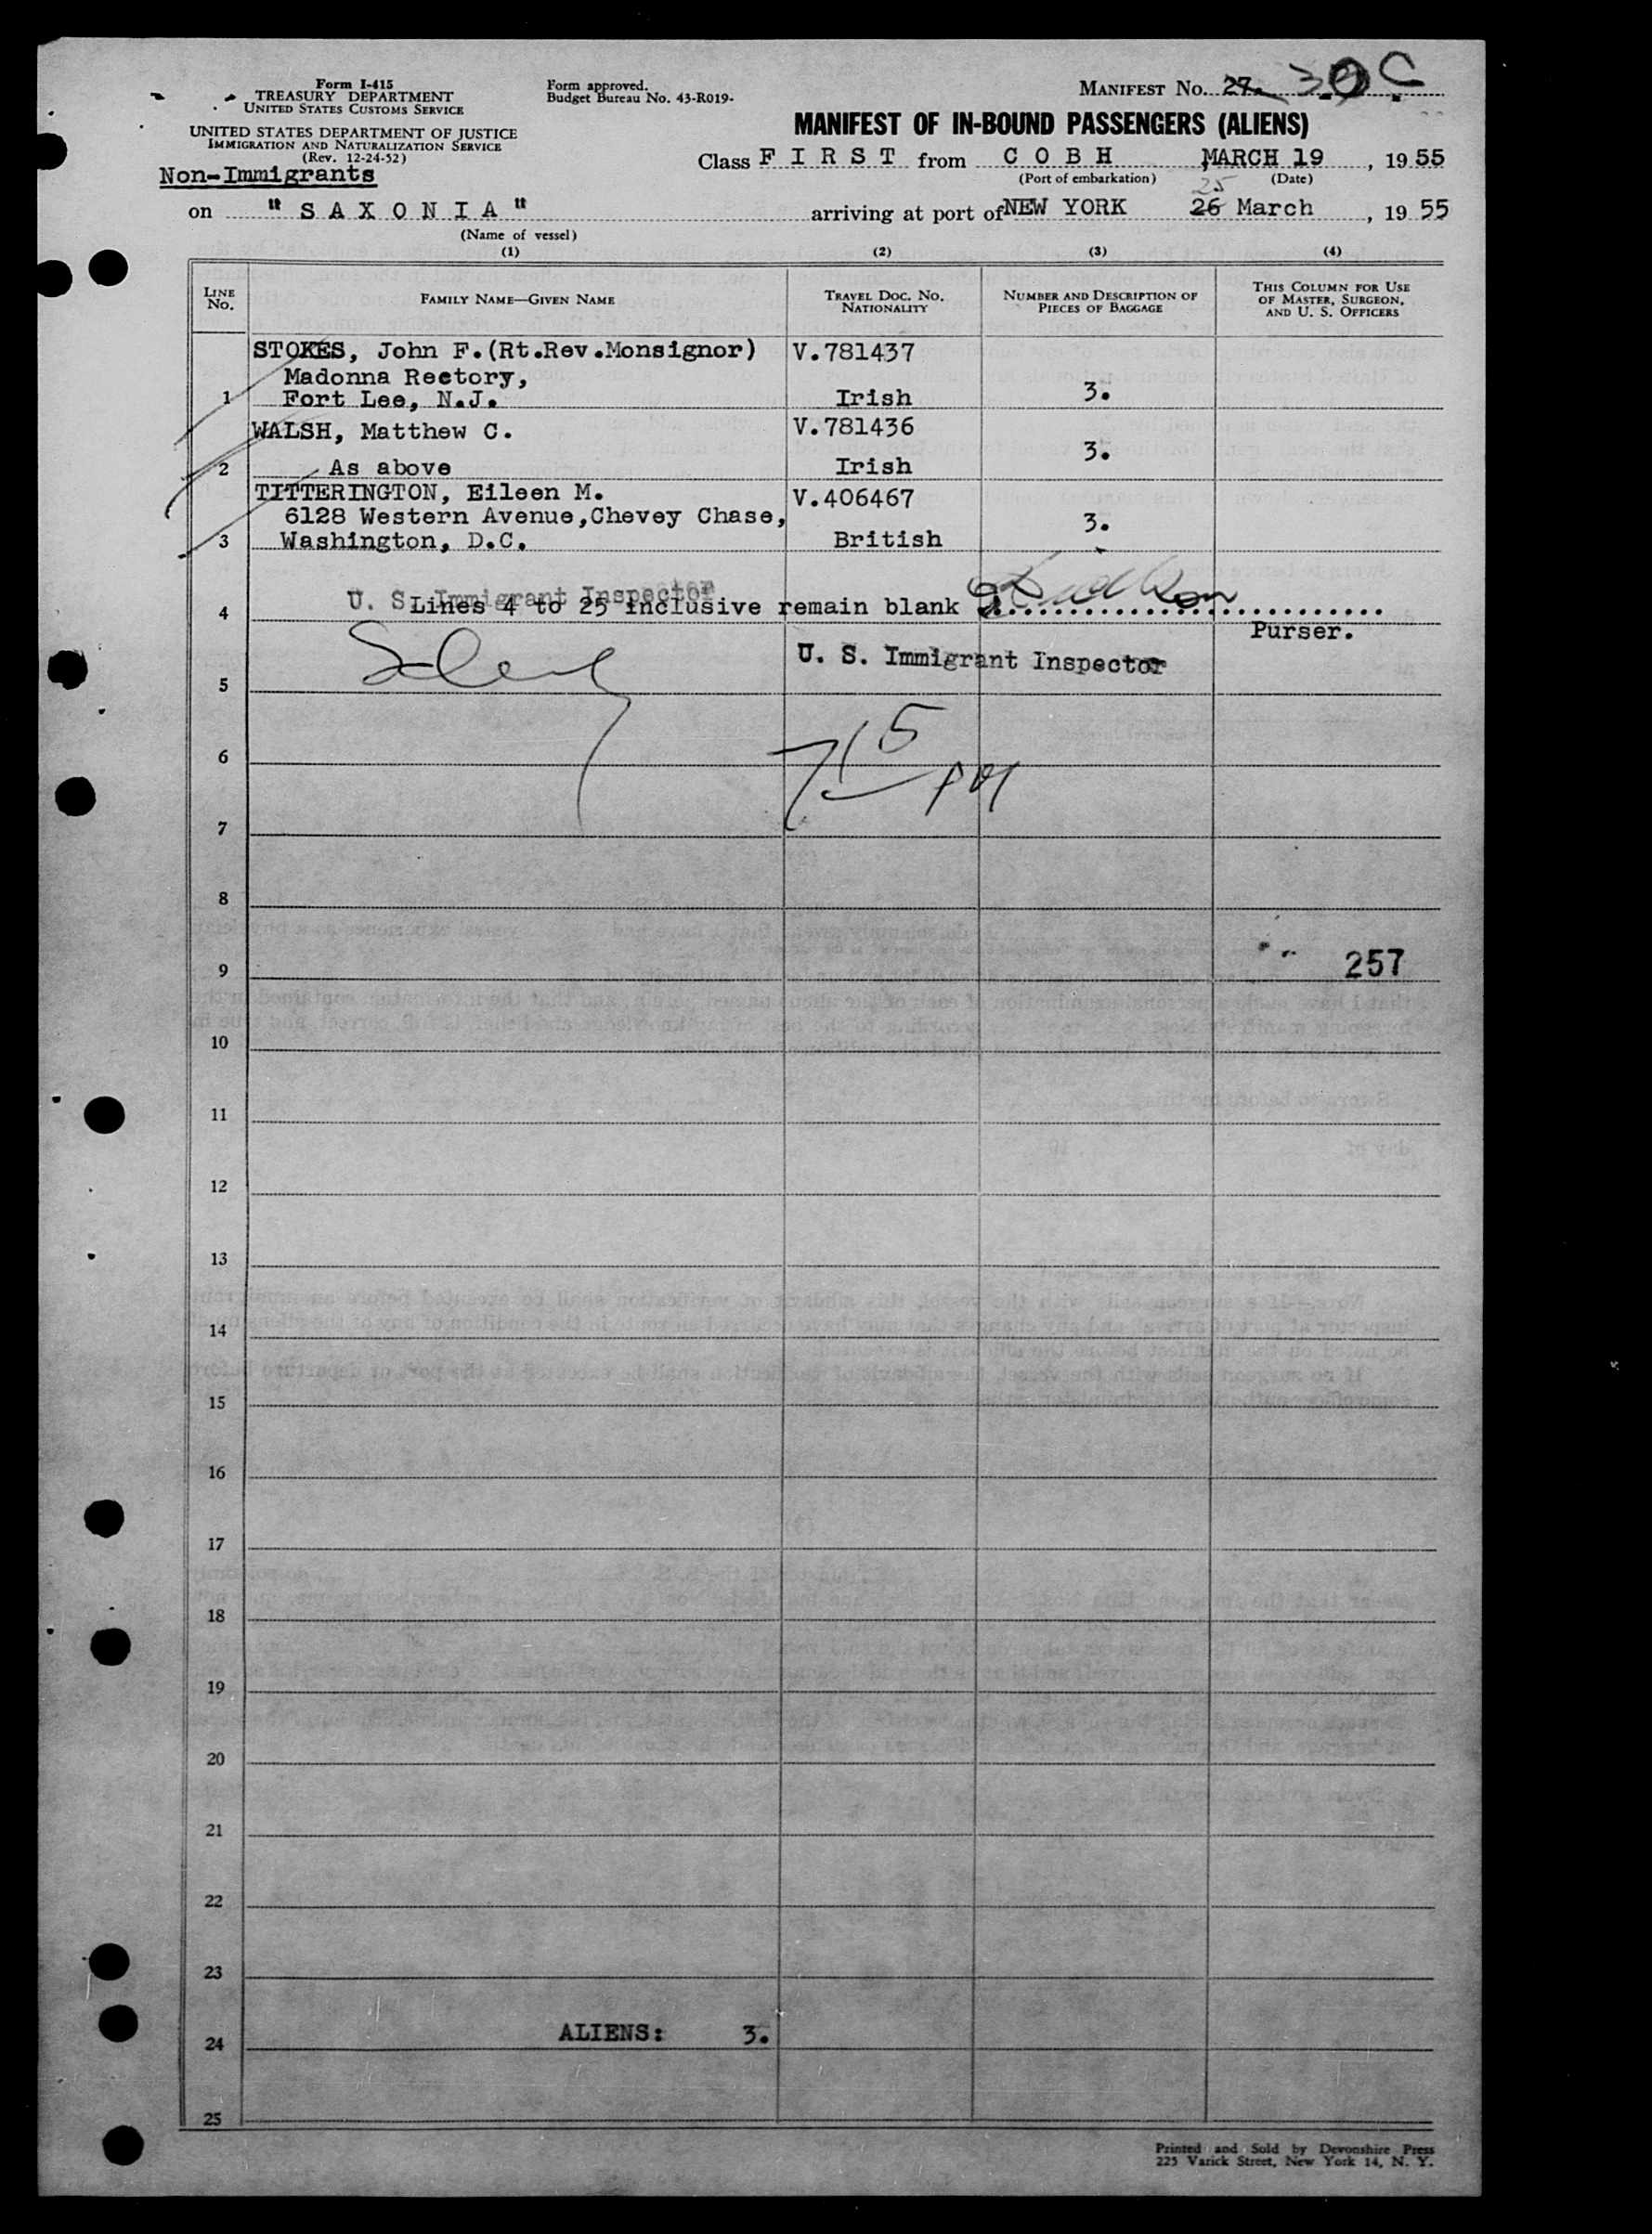 Form I-415
TREASURY DEPARTMENT
UNITED STATES CUSTOMS SERVICE
UNITED STATES DEPARTMENT OF JUSTICE
IMMIGRATION AND NATURALIZATION SERVICE
(Rev. 12-24-52)
Non-Immigrants
Form approved.
Budget Bureau No. 43-R019-
MANIFEST No. 27. 30 C
MANIFEST OF IN-BOUND PASSENGERS (ALIENS)
Class F I R S T from C O B H MARCH 19, 1955
(Port of embarkation) (Date)
25
on "S A X O N I A" arriving at port of NEW YORK 26 March, 1955
(Name of vessel)
(1) (2) (3) (4)
LINE No. FAMILY NAME—GIVEN NAME TRAVEL DOC. NO. NATIONALITY NUMBER AND DESCRIPTION OF PIECES OF BAGGAGE THIS COLUMN FOR USE OF MASTER, SURGEON, AND U. S. OFFICERS
STOKES, John F.(Rt.Rev.Monsignor) V.781437
Madonna Rectory,
1 Fort Lee, N.J. Irish 3.
WALSH, Matthew C. V.781436
2 As above Irish 3.
TITTERINGTON, Eileen M. V.406467
6128 Western Avenue,Chevey Chase, 3.
3 Washington, D.C. British
U. S. Immigrant Inspector
4 Lines 4 to 25 inclusive remain blank
Purser.
U. S. Immigrant Inspector
5
715 PM
6
7
8
9 257
10
11
12
13
14
15
16
17
18
19
20
21
22
23
24 ALIENS: 3.
25
Printed and Sold by Devonshire Press
225 Varick Street, New York 14, N. Y.